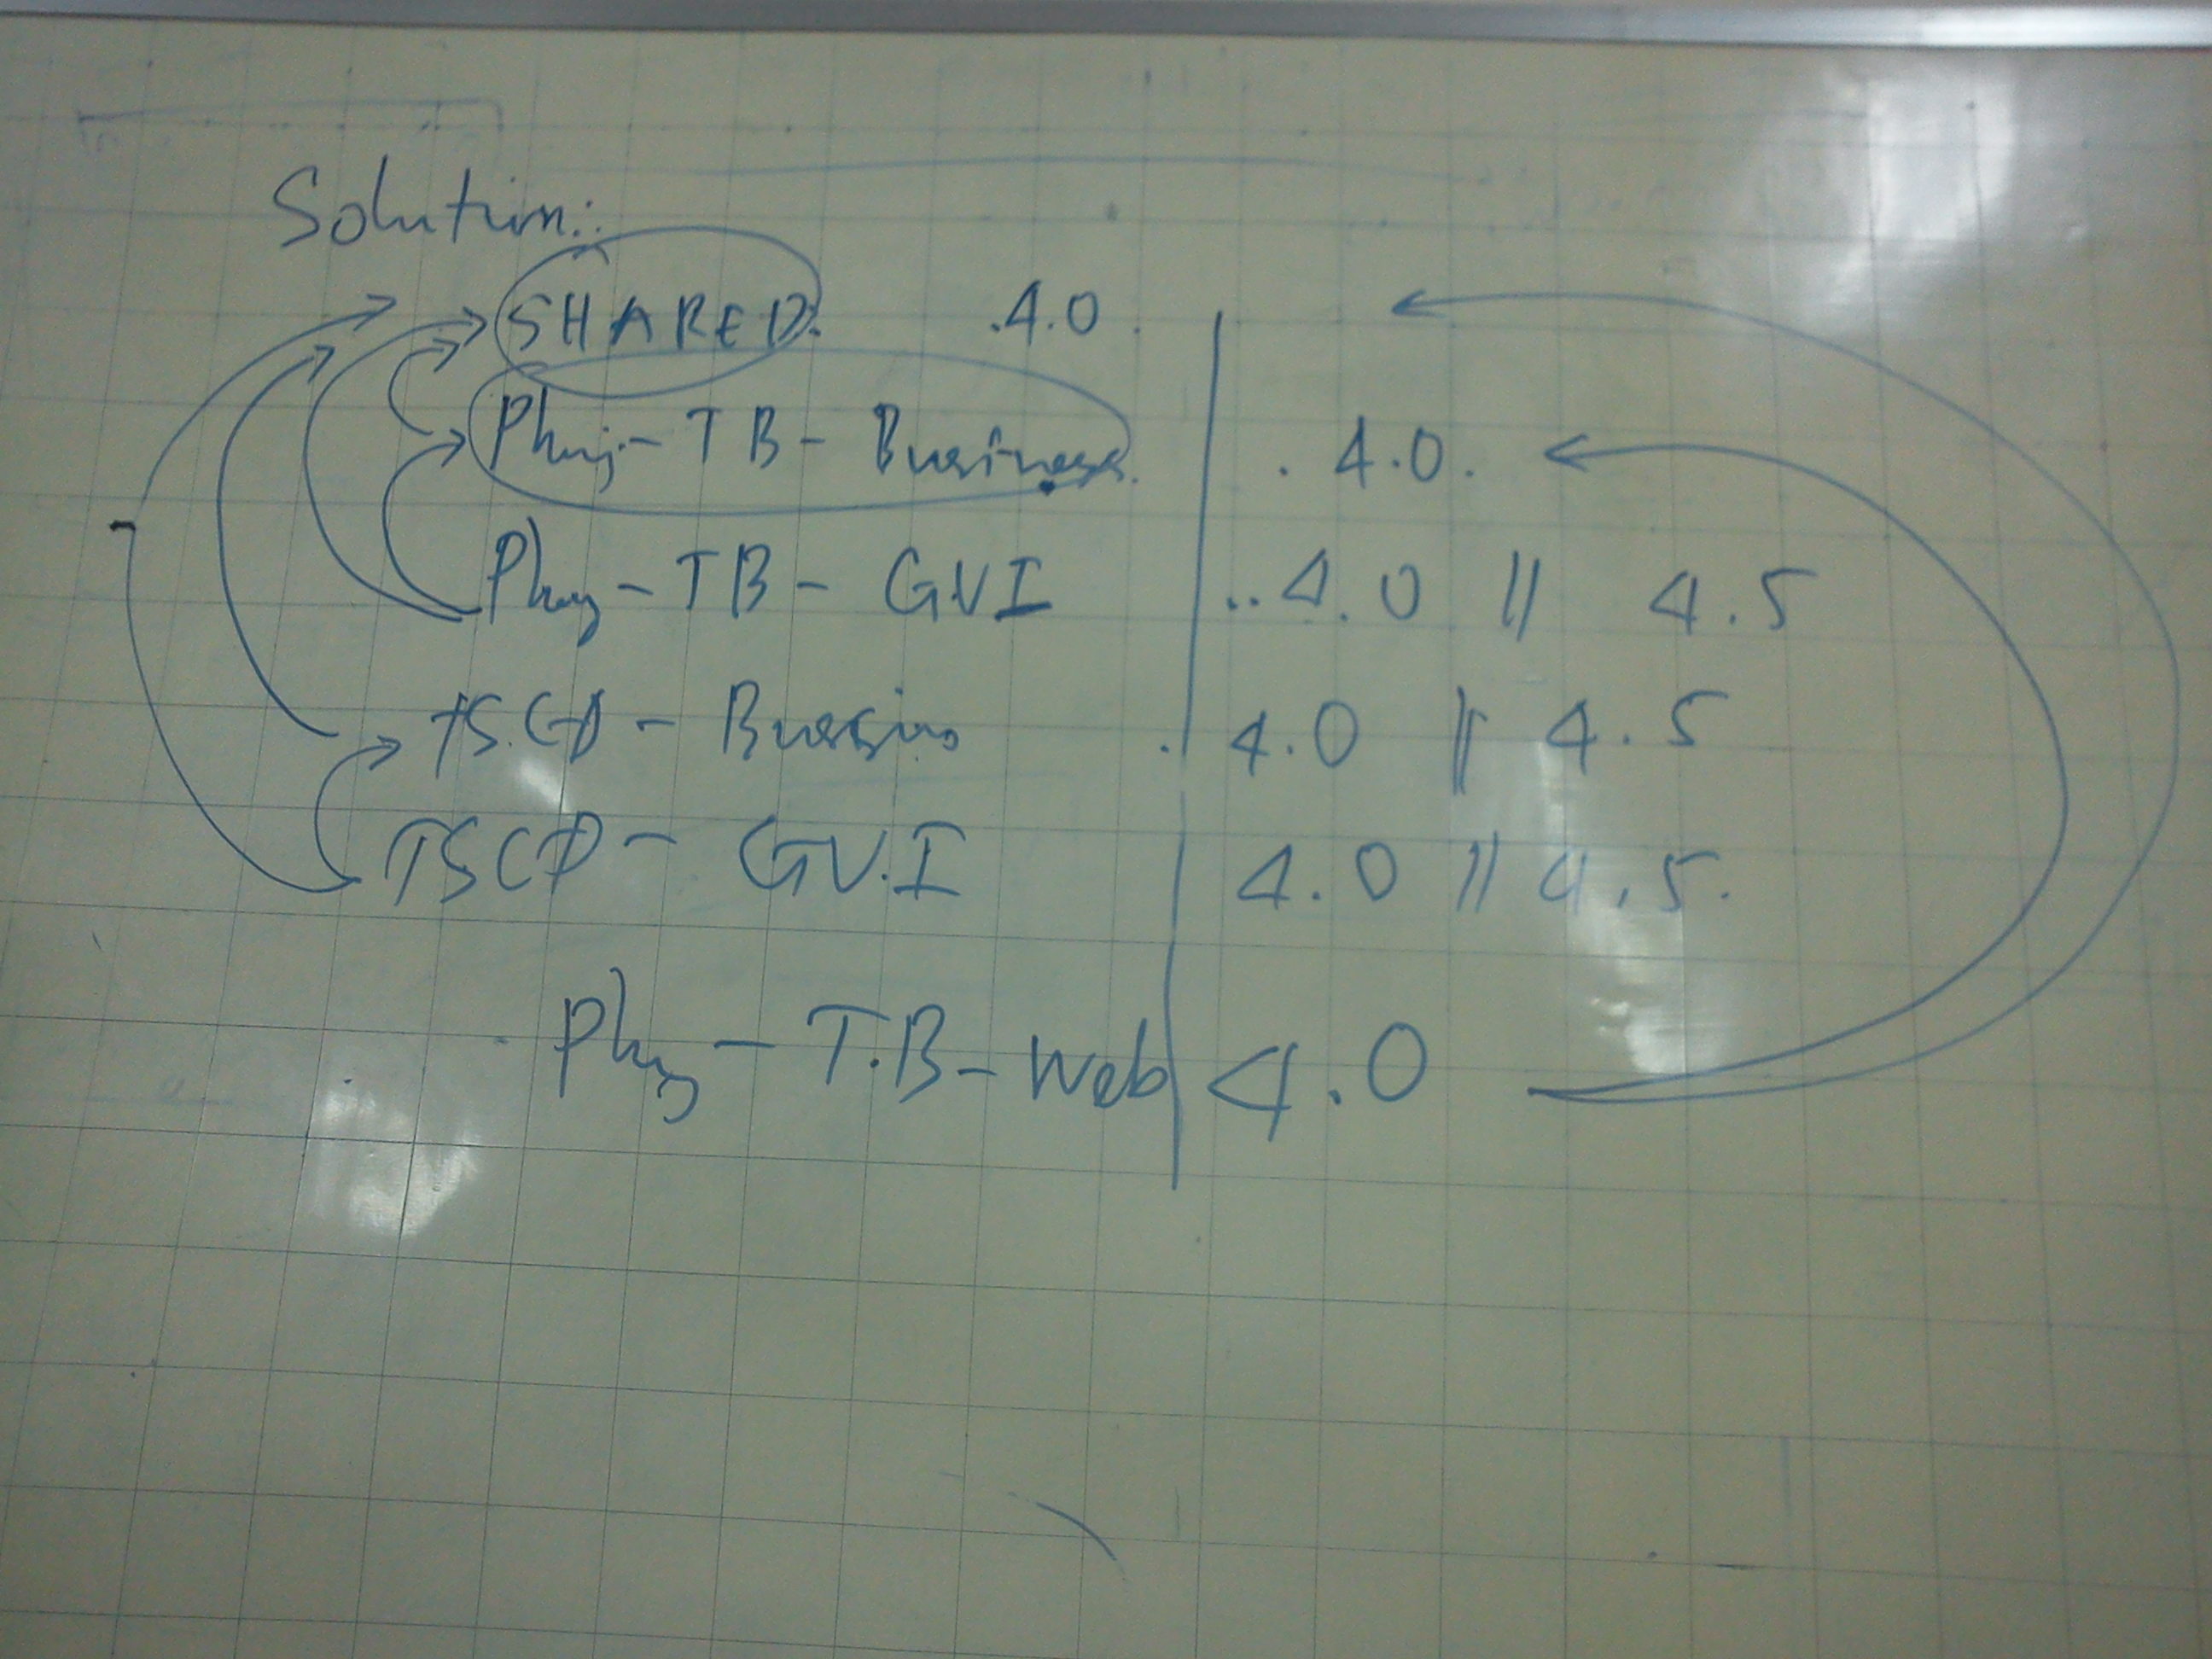 Solution:
SHARED. .4.0.
Phuj-TB-Business. .4.0.
Phuj-TB-GUI ..4.0 || 4.5
TSCD- 4.0 || 4.5
TSCD-GU.I 4.0 || 4.5.
Phuj-T.B-Web 4.0